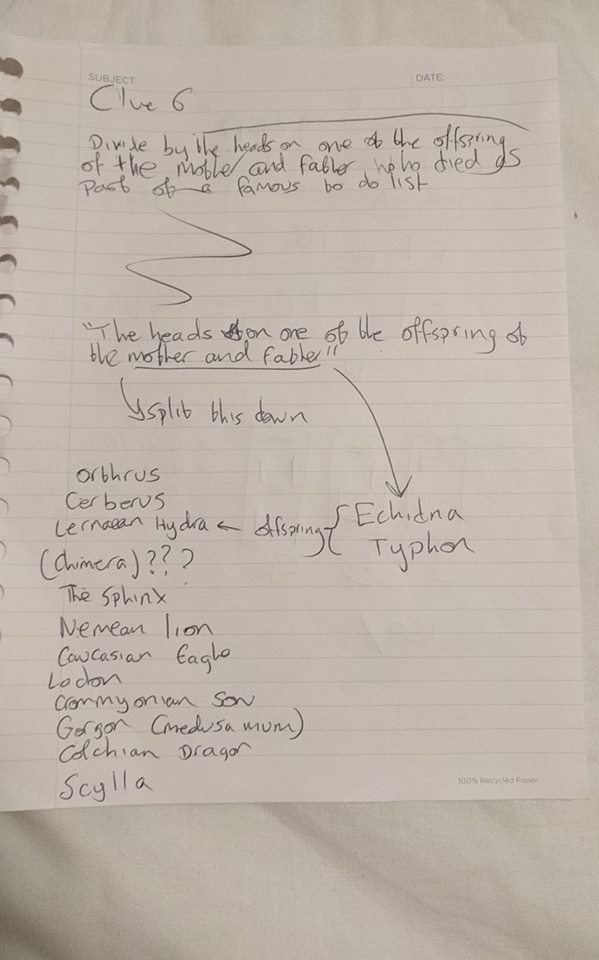 SUBJECT:
DATE:
Clue 6
Divide by the heads on one of the offspring
of the mother and father who died as
Part of a famous to do list
"The heads on one of the offspring of
the mother and father"
split this down
Orthrus
Cerberus
Lernaean Hydra ← offspring { Echidna
Typhon
(Chimera)???
The Sphinx
Nemean lion
Caucasian Eagle
Ladon
Crommyonian Sow
Gorgon (medusa mum)
Colchian Dragon
Scylla
100% Recycled Paper